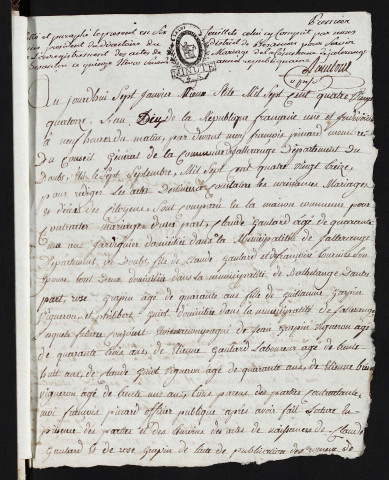 Premier
Cotté et paraphé le present en six feuillets celui cy Compris par nous
president du Directoire du District de Besancon pour servir
a l'enregistrement des actes de Mariage de la Commune de
Besancon ce quinze Nivos année républicaine
MINUTE
Aujourd'hui Sept Janvier Vieux stile Mil Sept Cent quatre Vingt
quatorze L'an Deux de la République française une et Indivisible
à neuf heures du matin, par devant moi françois pinard membre
du Conseil Général de la Commune Département du
Doubs, élu le Sept Septembre, Mil Sept Cent quatre vingt treize,
pour rédiger les actes Destinés à constater les naissances Mariages
et Décès des Citoyens, sont comparu en la maison commune pour
contracter mariage d'une part, Claude Gautard âgé de quarante
un ans Jardinier domicilié dans la Municipalité de
Département du Doubs, fils de Claude Gautard et de françois
Epouse, tout Deux domicilié dans la municipalité de l'autre
part, rose Grapin âgé de quarante ans fille de Guillaume Grapin
Vigneron, et Guiot domicilié dans la municipalité de
Lesquels futurs conjoint accompagné de Jean Grapin Vigneron âgé
de quarante trois ans, de Etienne Gautard Laboureur âgé de trente
huit ans, de Claude Guiot Vigneron âgé de quarante ans, de Etienne
Vigneron âgé de trente neuf ans, tous parens des parties contractantes
moi françois pinard officier publique après avoir fait lecture en
présence des parties et des témoins des actes de naissances de Claude
Gautard et de rose Grapin de l'acte de publication des promesse de